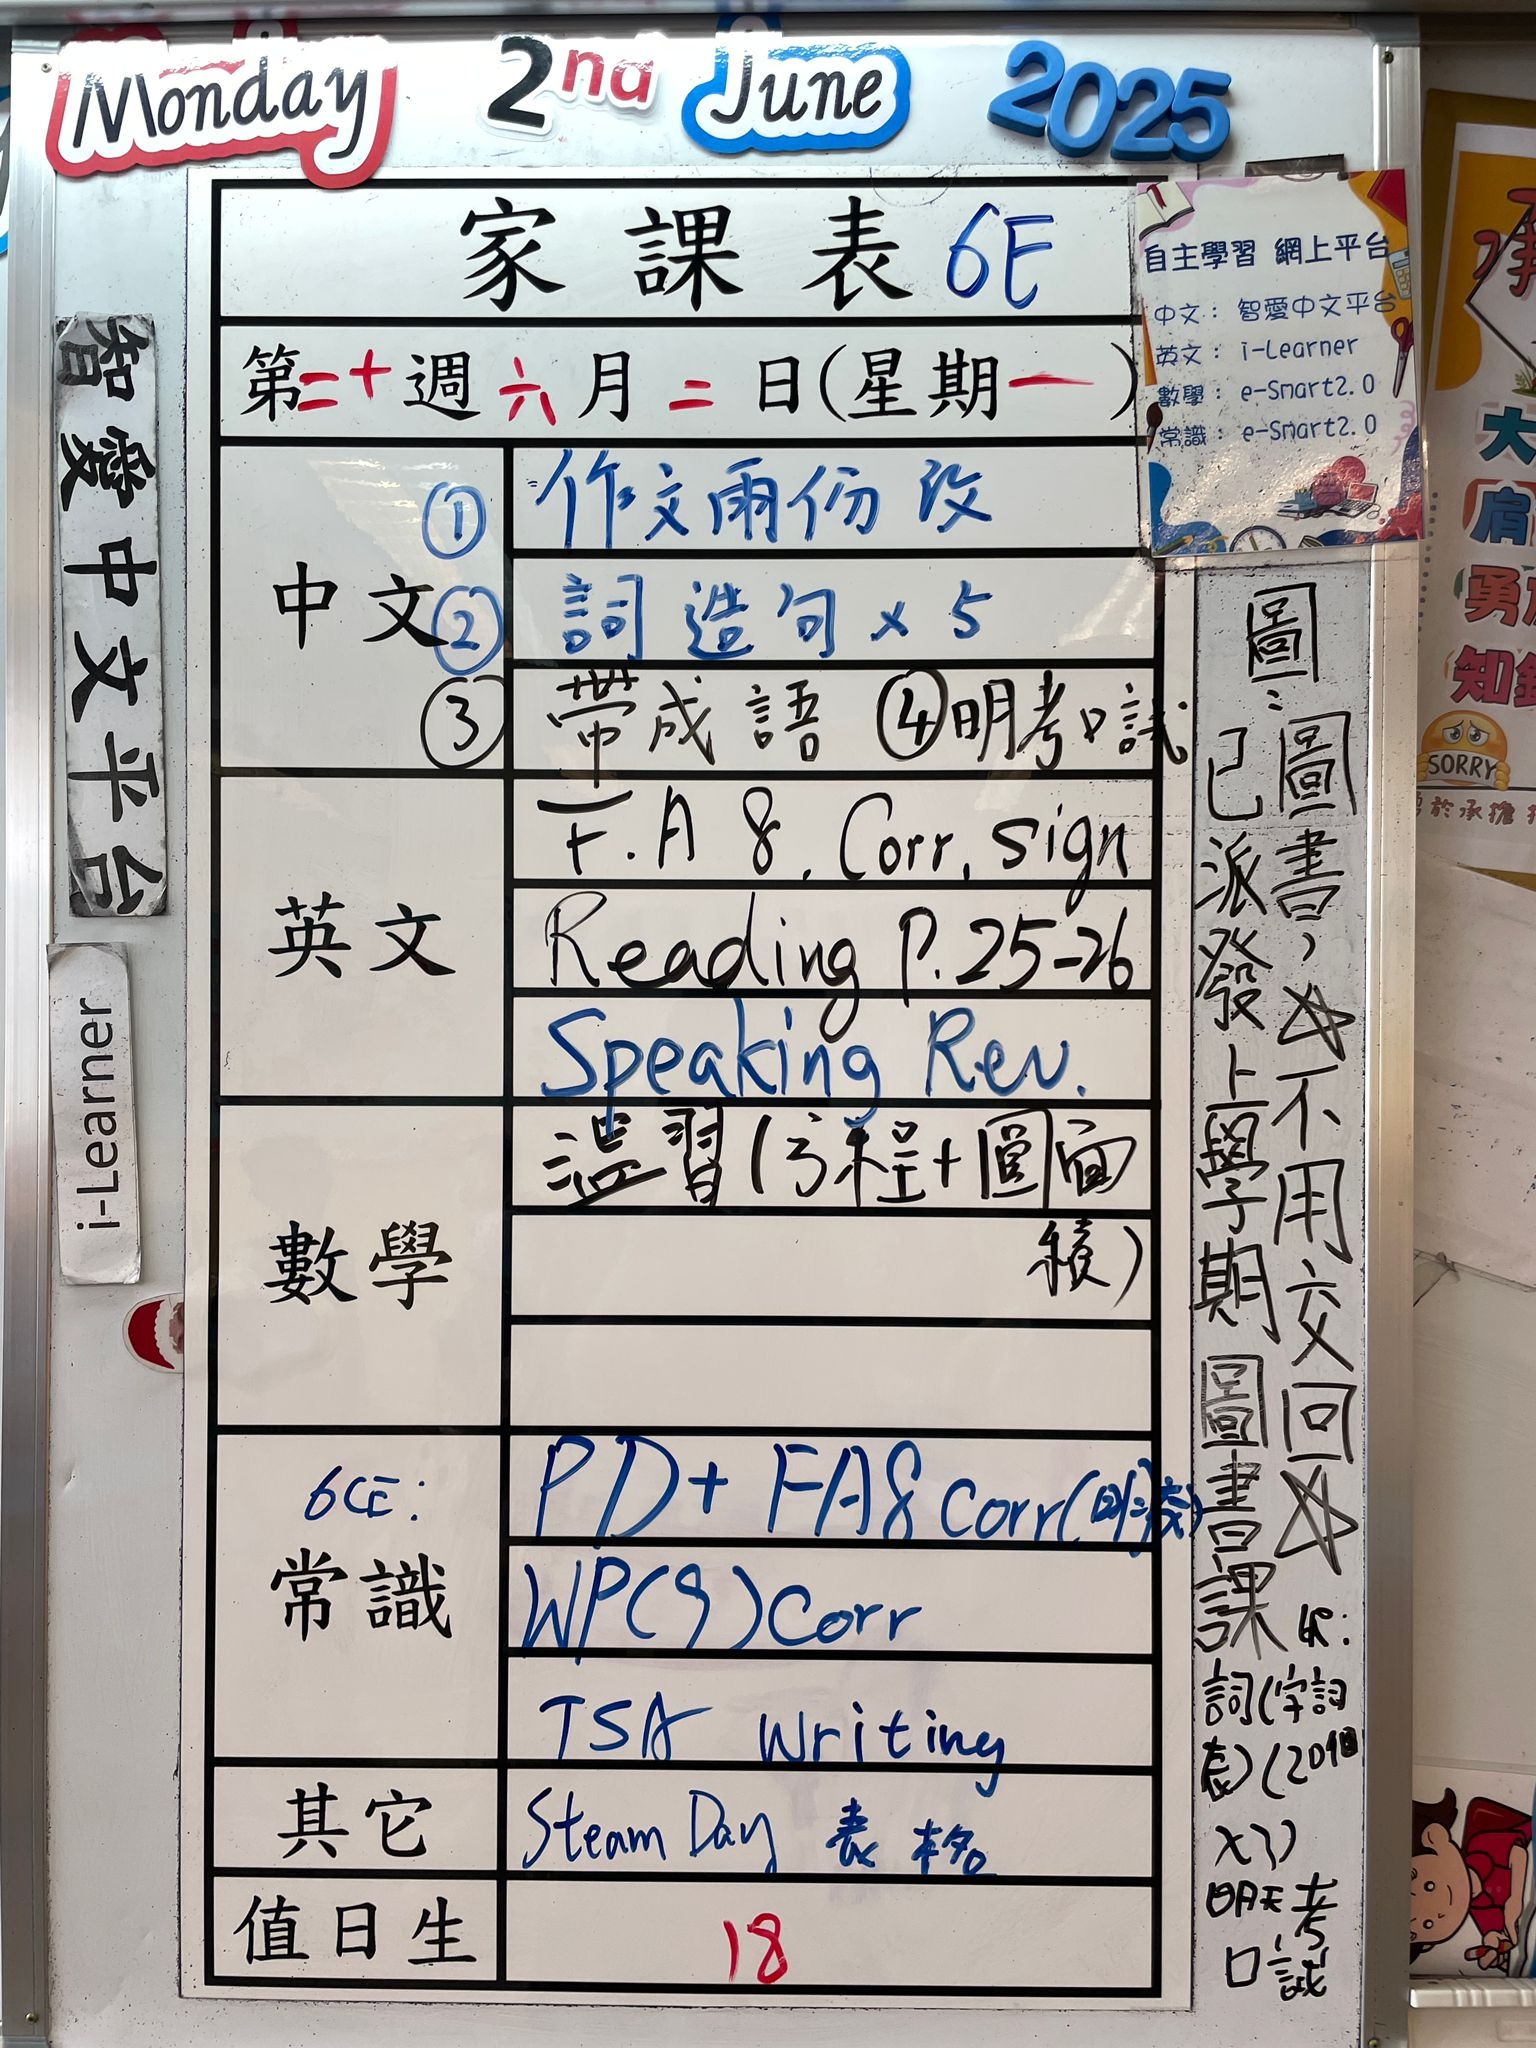 Monday 2nd June 2025
家課表 6E
第二十週六月二日(星期一)
中文
① 作文兩份改
② 詞造句x5
③ 帶成語 ④明考口試
英文
F.A 8. Corr, sign
Reading P.25-26
Speaking Rev.
數學
溫習(方程+圓面
積)
常識
6CE:
PD+ FA8 corr(明交)
WP(9)corr
TSA writing
其它
Steam Day 表格
值日生
18
自主學習 網上平台
中文: 智愛中文平台
英文: i-Learner
數學: e-Smart2.0
常識: e-Smart2.0
智愛中文平台
i-Learner
圖:
圖書,☆不用交回☆
已派發上學期圖書課
詞(字詞
表)(20個
x3)
明天考
口試
SORRY
大
肩
勇
知
於承擔